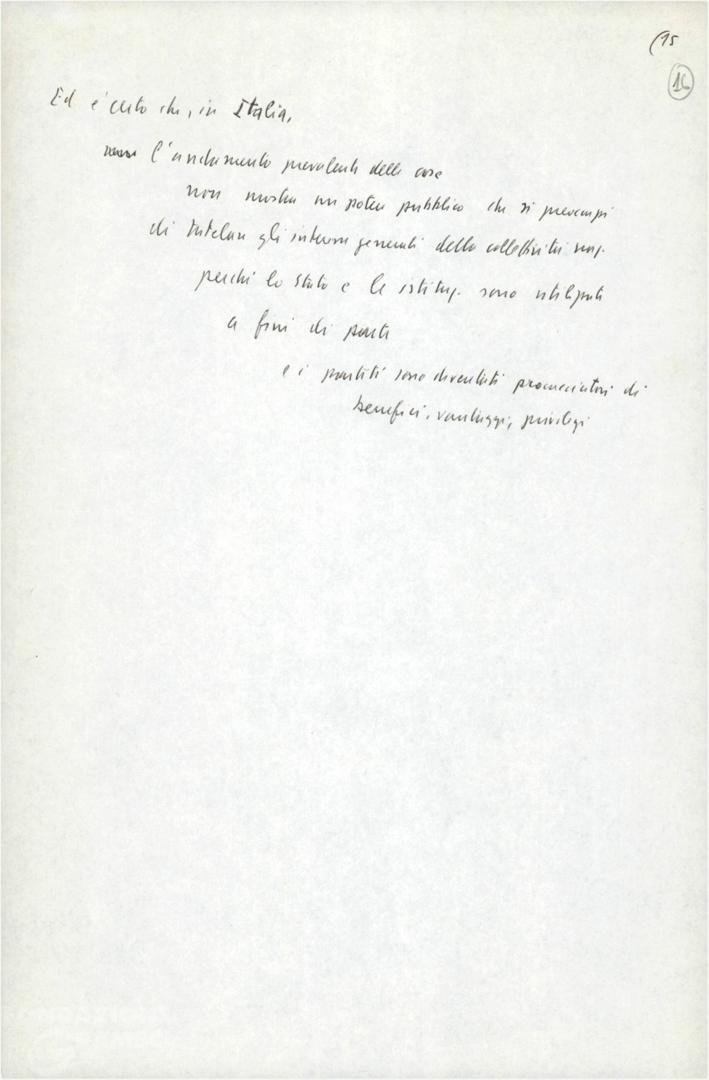 (15
16
Ed è certo che, in Italia,
l'andamento prevalente delle cose
non mostra un potere pubblico che si preoccupi
di tutelare gli interessi generali della collettività naz.
perché lo Stato e le istituz. sono utilizzati
a fini di parte
e i partiti sono diventati procacciatori di
benefici, vantaggi, privilegi